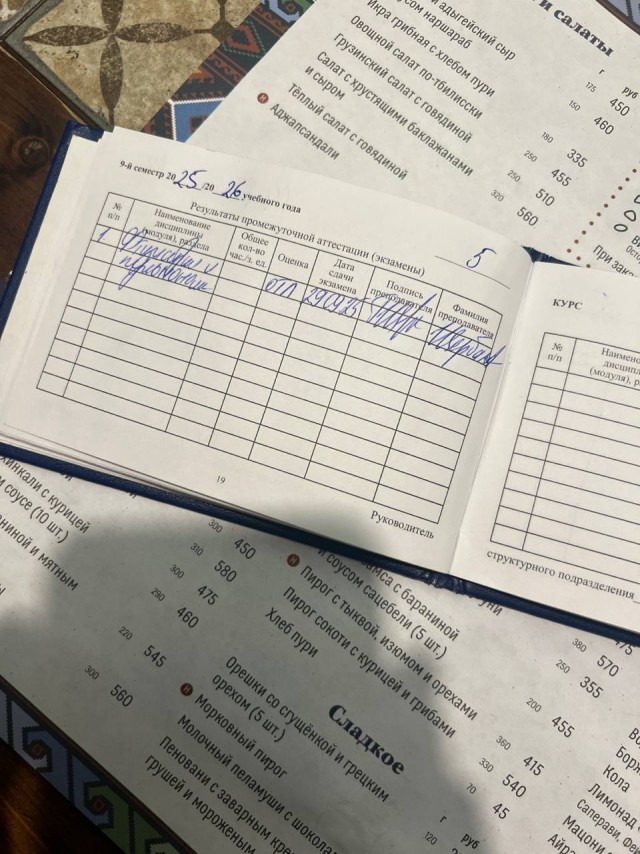 и салаты
адыгейский сыр
наршараб
г руб
Икра грибная с хлебом пури 175 450
Овощной салат по-тбилисски 150 460
Грузинский салат с говядиной 180 335
Салат с хрустящими баклажанами
и сыром 250 455
Тёплый салат с говядиной 250 510
Аджапсандали 320 560
При зака
9-й семестр 2025/2026 учебного года
Результаты промежуточной аттестации (экзамены) 5
№
п/п
Наименование
дисциплины
(модуля), раздела
Общее
кол-во
час./з. ед.
Оценка
Дата
сдачи
экзамена
Подпись
преподавателя
Фамилия
преподавателя
1. Фтизиатрия и отл 29.09.25
19
Руководитель
КУРС
№
п/п
Наимено
дисцип
(модуля), р
структурного подразделения
хинкали с курицей
соусе (10 шт.)
300 450
310 580
300 475
290 460
220 545
300 560
с бараниной
и соусом сацебели (5 шт.)
Пирог с тыквой, изюмом и орехами
Пирог сокоти с курицей и грибами
Хлеб пури
380 570
250 355
200 455
360 415
330 540
70 45
Сладкое
г руб
120
Орешки со сгущёнкой и грецким
орехом (5 шт.)
Морковный пирог
Молочный пеламуши с шокола
Пеновани с заварным кре
грушей и мороженым
Кола
Лимонад
Саперави, Фе
Мацони